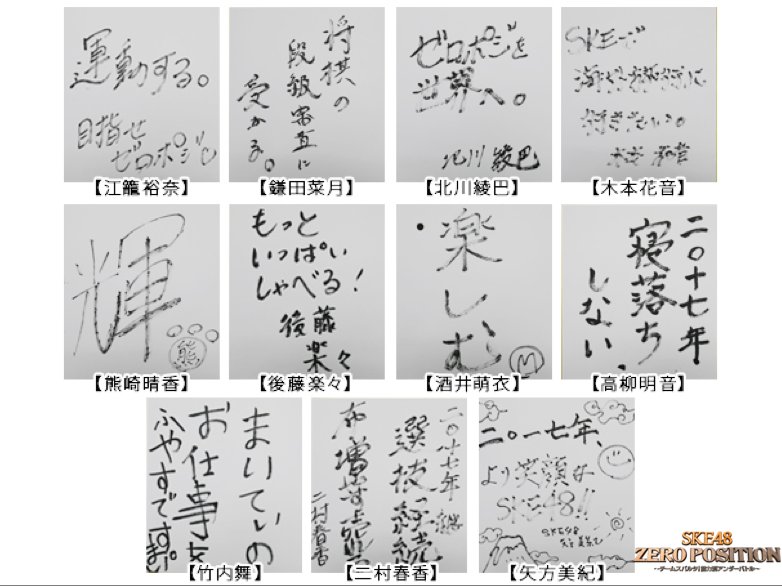 運動する。
目指せ
ゼロポジし
【江籠裕奈】
将棋の
段級審査に
受かる。
【鎌田菜月】
ゼロポジを
世界へ。
北川綾巴
【北川綾巴】
SKEで
行きたい。
木本花音
【木本花音】
輝
熊
【熊崎晴香】
もっと
いっぱい
しゃべる!
後藤
楽々
【後藤楽々】
楽しむ
M
【酒井萌衣】
二〇十七年
寝落ち
しない、
【高柳明音】
まいてぃの
お仕事を
ふやすです。
【竹内舞】
二〇十七年
選抜継続
二村春香
【二村春香】
二〇一七年、
より笑顔な
SKE48!!
SKE48
矢方美紀
【矢方美紀】
SKE48
ZERO POSITION
~チームスパルタ!能力別アンダーバトル~